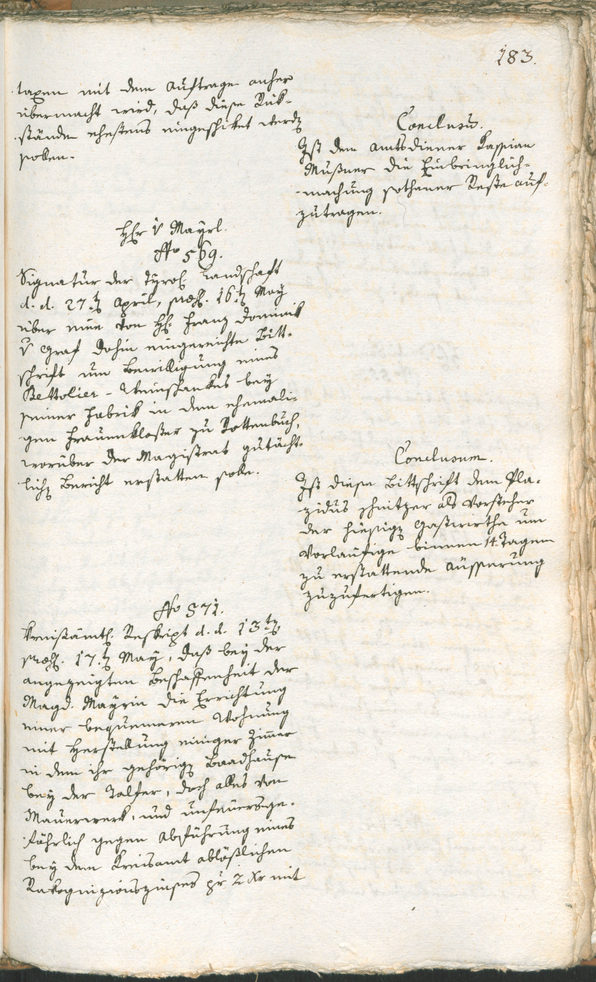 183.
taxen mit dem Auftrage anher
übermacht wird, daß diese Rük-
stände ehestens eingeschiket werdn
sollen.
Conclusum.
Ist dem Amtsdiener Kassian
Mußner die Einbringlich-
machung sothaner Reste auf-
zutragen.
Hr v Mayrl.
No 569.
Signatur der Tyrol. Landschaft
d. d. 27.tn April, præs. 16.tn May
über eine von H. Franz Dominik
v Graf dahin eingereichte Bitt-
schrift um Bewilligung eines
Bettolier-Weinschankes bey
seiner Fabrik in dem ehemali-
gen Frauenkloster zu Rottenbuch,
worüber der Magistrat gutächt-
lichn Bericht erstatten solle.
Conclusum.
Ist diese Bittschrift dem Pla-
zidus Schnitzer als Vorsteher
der hiesign Gastwirthe um
vorläufige binnen 14 Tagen
zu erstattende Äusserung
zuzufertigen.
No 571.
Kreisämtl. Reskript d. d. 13tn
præs. 17.tn May, daß bey der
angezeigten Beschaffenheit der
Magd. Mayrin die Errichtung
einer bequemeren Wohnung
mit Herstellung einiger Zimer
in dem ihr gehörign Baadhause
bey der Talfer, doch alles von
Mauerwerk, und unfeuersge-
fährlich gegen Abführung eines
bey dem Kreisamt ablößlichen
Rekognizionszinses pr 2 Xr mit